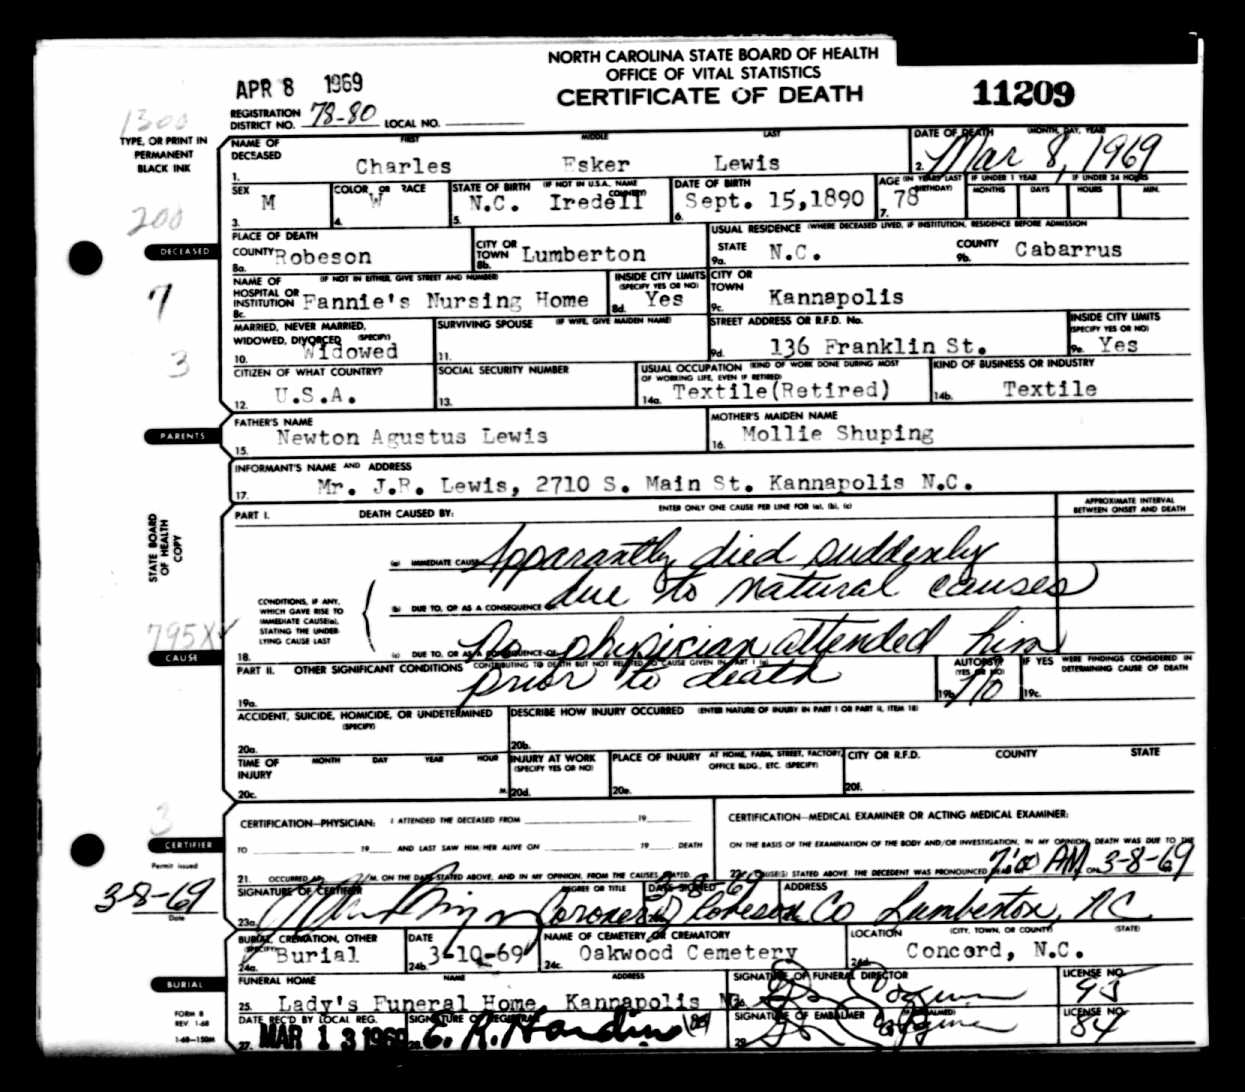 NORTH CAROLINA STATE BOARD OF HEALTH
OFFICE OF VITAL STATISTICS
CERTIFICATE OF DEATH
11209
APR 8 1969
REGISTRATION DISTRICT NO. 78-80 LOCAL NO.
1300
TYPE, OR PRINT IN PERMANENT BLACK INK
NAME OF DECEASED FIRST MIDDLE LAST DATE OF DEATH (MONTH, DAY, YEAR)
1. Charles Esker Lewis 2. Mar 8, 1969
SEX COLOR OR RACE STATE OF BIRTH (IF NOT IN U.S.A., NAME COUNTRY) DATE OF BIRTH AGE (IN YEARS LAST BIRTHDAY) IF UNDER 1 YEAR IF UNDER 24 HOURS
MONTHS DAYS HOURS MIN.
3. M 4. W 5. N.C. Iredell 6. Sept. 15,1890 7. 78
200
DECEASED
PLACE OF DEATH USUAL RESIDENCE (WHERE DECEASED LIVED, IF INSTITUTION, RESIDENCE BEFORE ADMISSION
8a. COUNTY Robeson 8b. CITY OR TOWN Lumberton 9a. STATE N.C. 9b. COUNTY Cabarrus
NAME OF HOSPITAL OR INSTITUTION (IF NOT IN EITHER, GIVE STREET AND NUMBER) INSIDE CITY LIMITS (SPECIFY YES OR NO) CITY OR TOWN
8c. Fannie's Nursing Home 8d. Yes 9c. Kannapolis
7
MARRIED, NEVER MARRIED, WIDOWED, DIVORCED (SPECIFY) SURVIVING SPOUSE (IF WIFE, GIVE MAIDEN NAME) STREET ADDRESS OR R.F.D. No. INSIDE CITY LIMITS (SPECIFY YES OR NO)
10. Widowed 11. 9d. 136 Franklin St. 9e. Yes
3
CITIZEN OF WHAT COUNTRY? SOCIAL SECURITY NUMBER USUAL OCCUPATION (KIND OF WORK DONE DURING MOST OF WORKING LIFE, EVEN IF RETIRED) KIND OF BUSINESS OR INDUSTRY
12. U.S.A. 13. 14a. Textile(Retired) 14b. Textile
PARENTS
FATHER'S NAME MOTHER'S MAIDEN NAME
15. Newton Agustus Lewis 16. Mollie Shuping
INFORMANT'S NAME AND ADDRESS
17. Mr. J.R. Lewis, 2710 S. Main St. Kannapolis N.C.
PART I. DEATH CAUSED BY: ENTER ONLY ONE CAUSE PER LINE FOR (a), (b), (c) APPROXIMATE INTERVAL BETWEEN ONSET AND DEATH
STATE BOARD OF HEALTH COPY
(a) IMMEDIATE CAUSE Apparantly died suddenly
CONDITIONS, IF ANY, WHICH GAVE RISE TO IMMEDIATE CAUSE(a), STATING THE UNDERLYING CAUSE LAST
(b) DUE TO, OR AS A CONSEQUENCE OF due to natural causes
795X
CAUSE
18. (c) DUE TO, OR AS A CONSEQUENCE OF No physician attended him
PART II. OTHER SIGNIFICANT CONDITIONS CONTRIBUTING TO DEATH BUT NOT RELATED TO CAUSE GIVEN IN PART I (a) AUTOPSY? (YES OR NO) IF YES WERE FINDINGS CONSIDERED IN DETERMINING CAUSE OF DEATH
19a. prior to death 19b. No 19c.
ACCIDENT, SUICIDE, HOMICIDE, OR UNDETERMINED (SPECIFY) DESCRIBE HOW INJURY OCCURRED (ENTER NATURE OF INJURY IN PART I OR PART II, ITEM 18)
20a. 20b.
TIME OF INJURY MONTH DAY YEAR HOUR INJURY AT WORK (SPECIFY YES OR NO) PLACE OF INJURY AT HOME, FARM, STREET, FACTORY, OFFICE BLDG., ETC. (SPECIFY) CITY OR R.F.D. COUNTY STATE
20c. M. 20d. 20e. 20f.
3
CERTIFIER
CERTIFICATION—PHYSICIAN: I ATTENDED THE DECEASED FROM 19 CERTIFICATION—MEDICAL EXAMINER OR ACTING MEDICAL EXAMINER:
TO 19 AND LAST SAW HIM/HER ALIVE ON 19 DEATH ON THE BASIS OF THE EXAMINATION OF THE BODY AND/OR INVESTIGATION, IN MY OPINION, DEATH WAS DUE TO THE
21. OCCURRED AT M. ON THE DATE STATED ABOVE, AND IN MY OPINION, FROM THE CAUSES STATED. 22. CAUSE(S) STATED ABOVE. THE DECEDENT WAS PRONOUNCED DEAD 7:00 AM ON 3-8-69
Permit issued
3-8-69
Date
SIGNATURE OF CERTIFIER DEGREE OR TITLE DATE SIGNED ADDRESS
23a. Coroner 3-8-69 Robeson Co Lumberton, NC
BURIAL, CREMATION, OTHER (SPECIFY) DATE NAME OF CEMETERY OR CREMATORY LOCATION (CITY, TOWN, OR COUNTY) (STATE)
24a. Burial 24b. 3-10-69 24c. Oakwood Cemetery 24d. Concord, N.C.
BURIAL
FUNERAL HOME NAME ADDRESS SIGNATURE OF FUNERAL DIRECTOR LICENSE NO.
25. Lady's Funeral Home, Kannapolis N 26. 93
FORM 8
REV. 1-68
1-68—150M
DATE REC'D BY LOCAL REG. SIGNATURE OF REGISTRAR SIGNATURE OF EMBALMER (IF EMBALMED) LICENSE NO.
27. MAR 13 1969 28. E. R. Hardin 29. 84